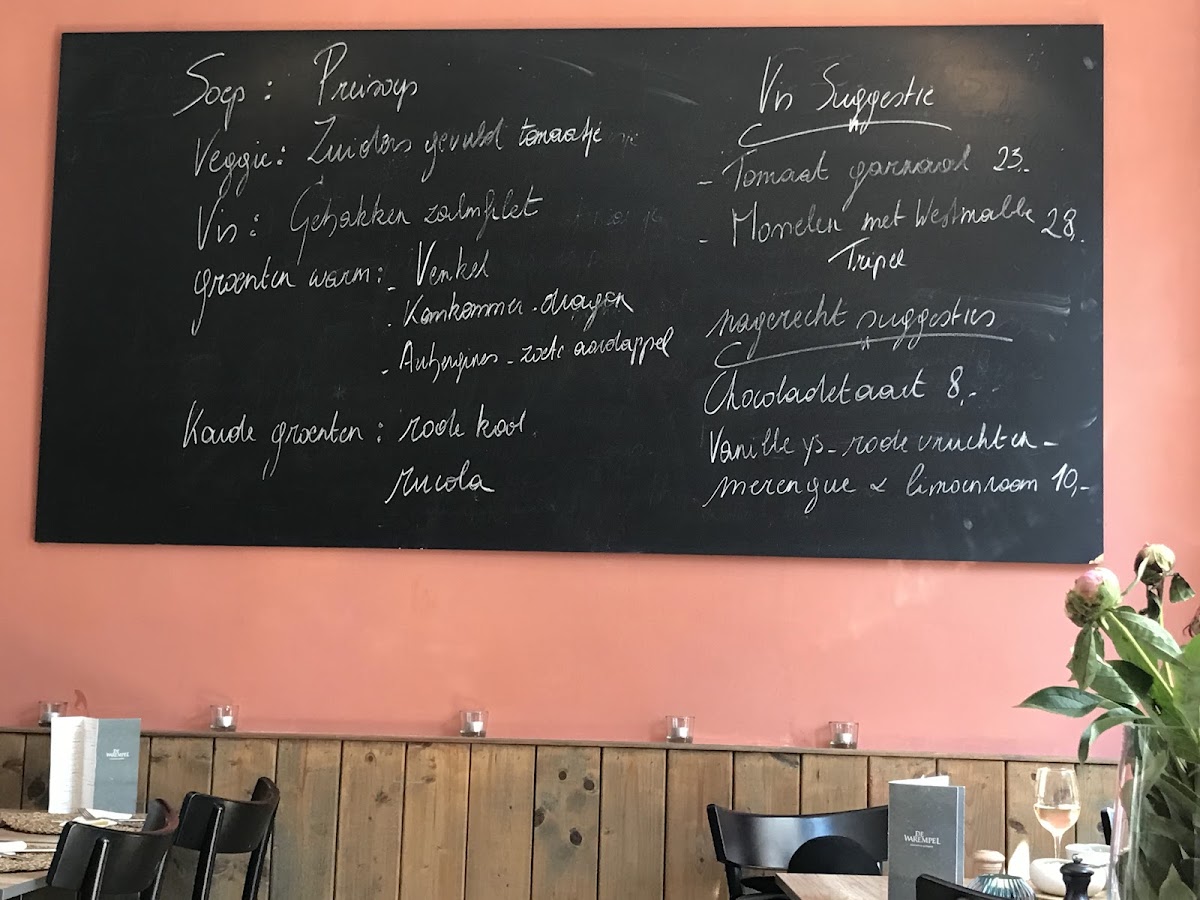 Soep : Preisoep
Veggie : Zuiders gevuld tomaatje
Vis : Gebakken zalmfilet
groenten warm : - Venkel
- Komkommer - dragon
- Aubergines - zoete aardappel
Koude groenten : rode kool
rucola
Vis Suggestie
- Tomaat garnaal 23,-
- Mosselen met Westmalle 28,-
Tripel
nagerecht suggesties
Chocoladetaart 8,-
Vanille ys - rode vruchten -
merengue & limoenroom 10,-
DE
WAREMPEL
DE
WAREMPEL